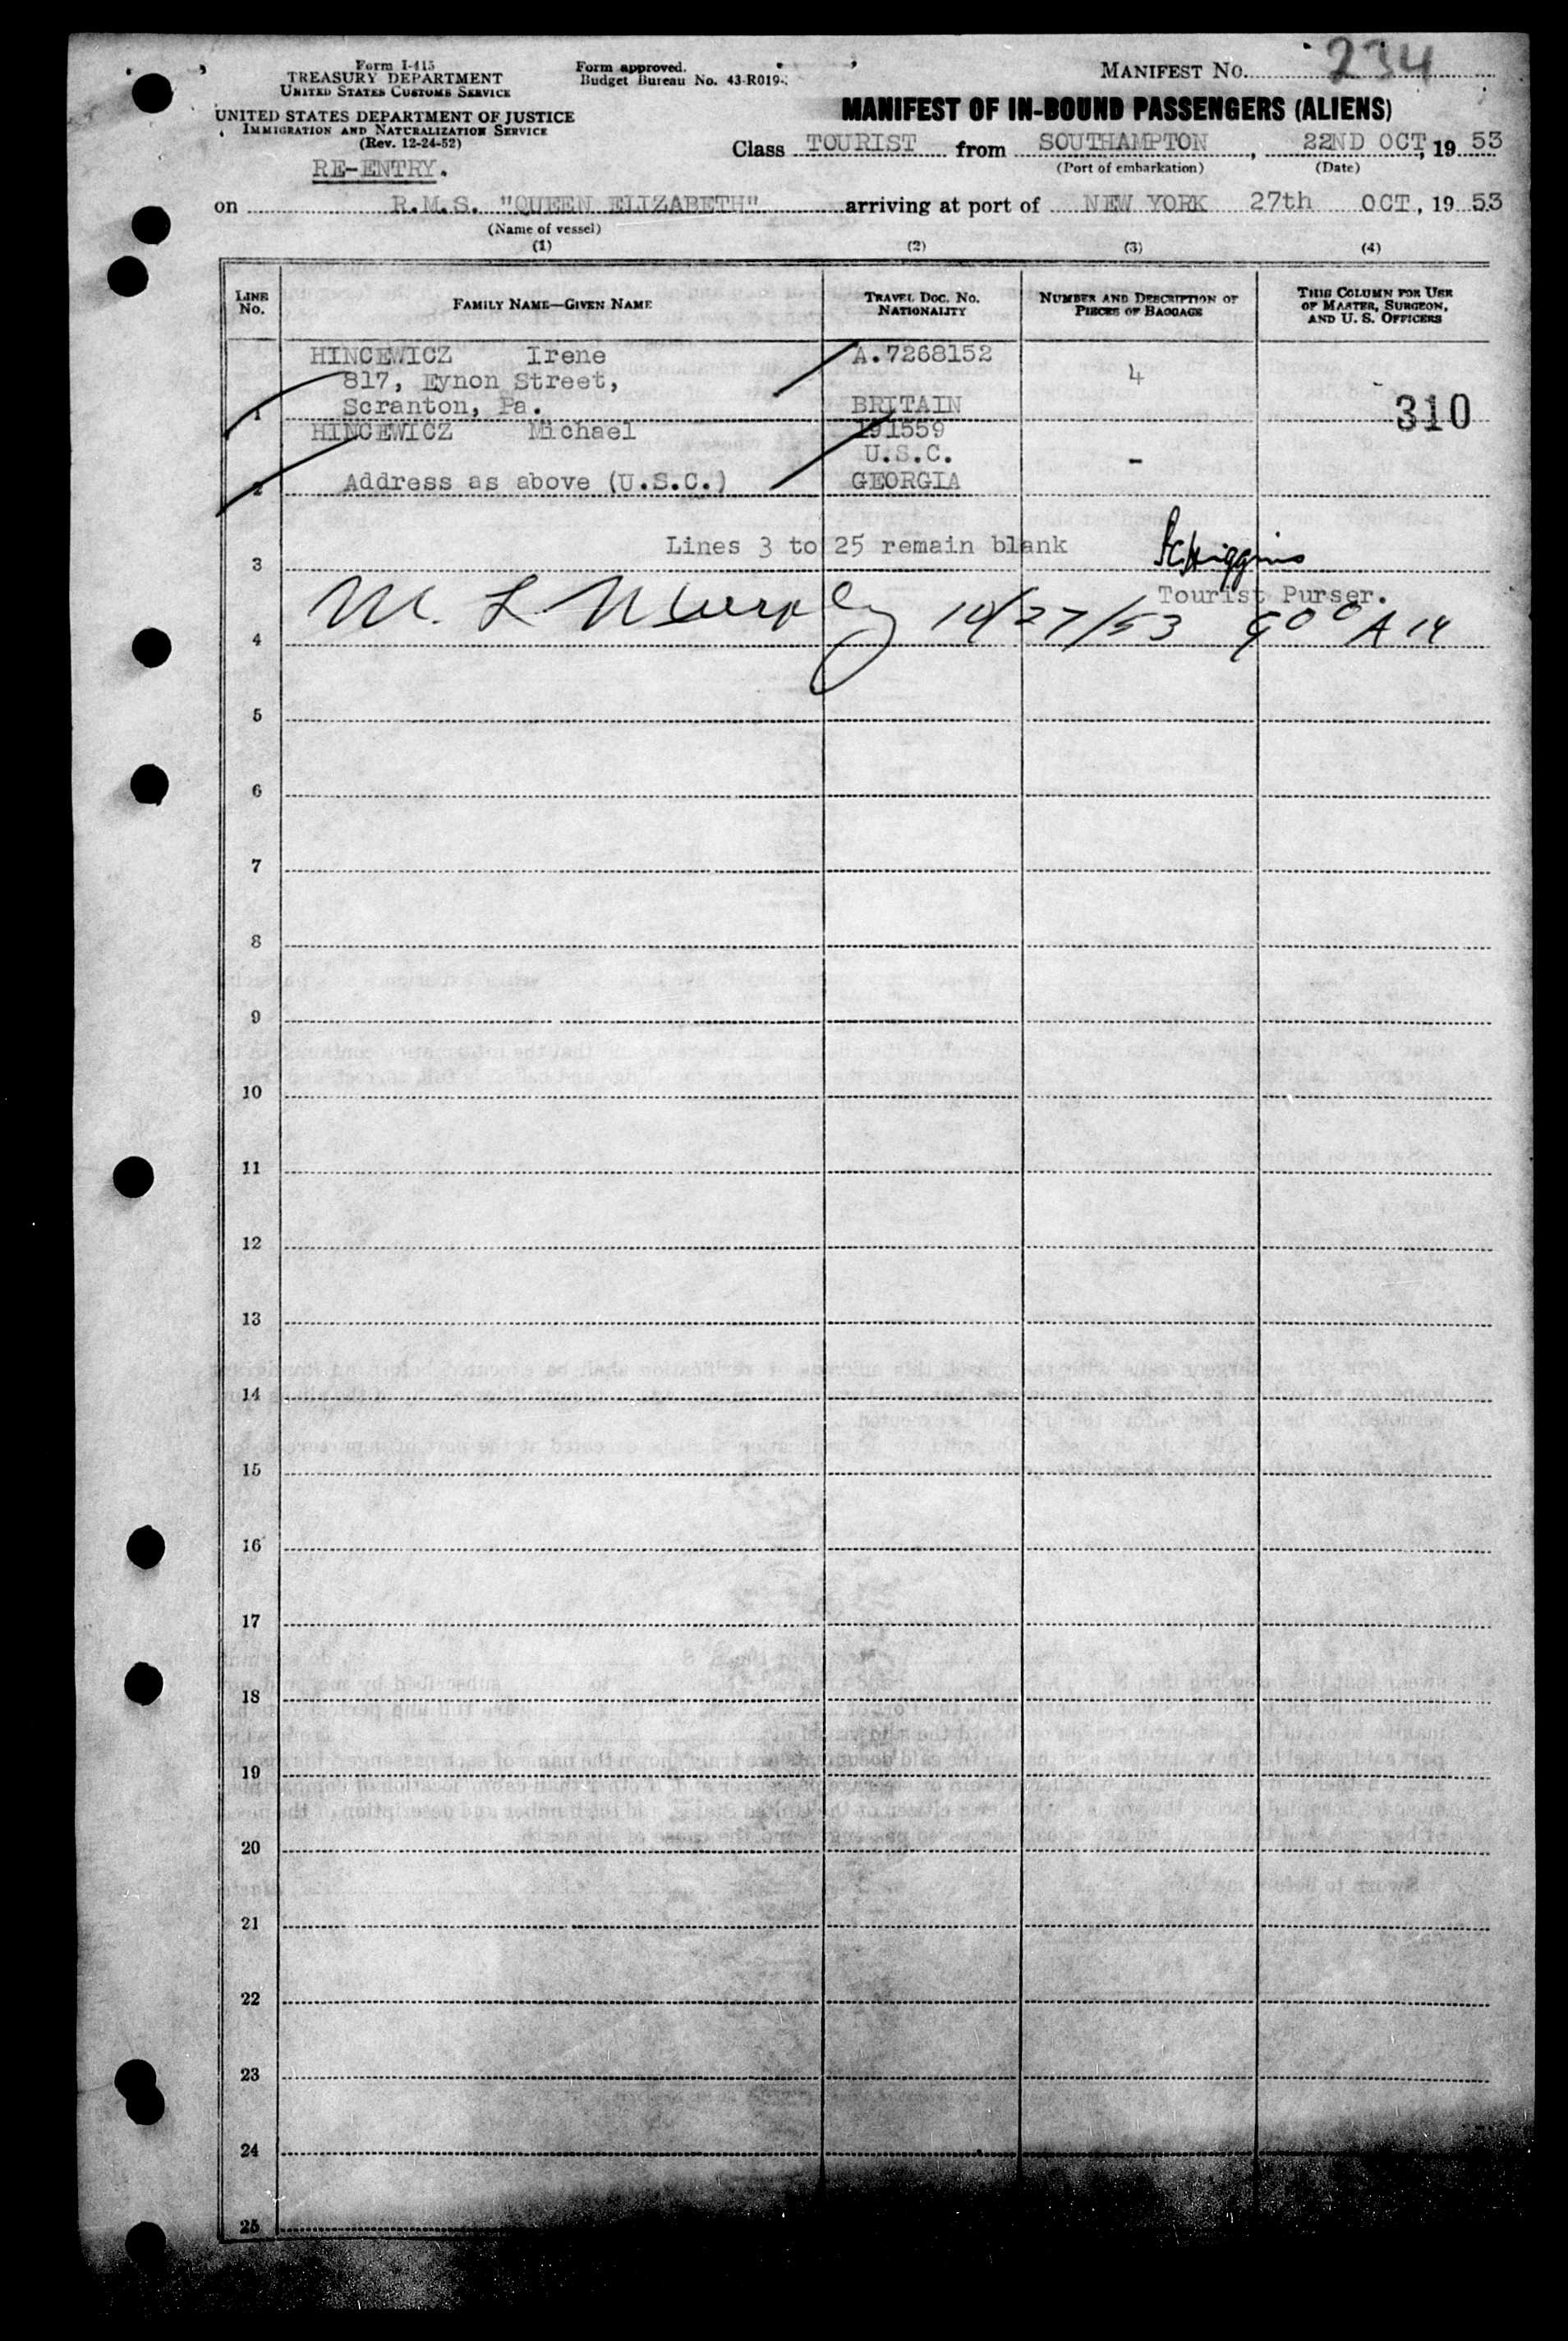 Form I-415
TREASURY DEPARTMENT
UNITED STATES CUSTOMS SERVICE
UNITED STATES DEPARTMENT OF JUSTICE
IMMIGRATION AND NATURALIZATION SERVICE
(Rev. 12-24-52)
RE-ENTRY.
Form approved.
Budget Bureau No. 43-R019-
MANIFEST No. 234
MANIFEST OF IN-BOUND PASSENGERS (ALIENS)
Class TOURIST from SOUTHAMPTON, 22ND OCT, 19 53
(Port of embarkation) (Date)
on R.M.S. "QUEEN ELIZABETH" arriving at port of NEW YORK 27th OCT, 19 53
(Name of vessel)
(1) (2) (3) (4)
LINE No. FAMILY NAME—GIVEN NAME TRAVEL DOC. NO. NATIONALITY NUMBER AND DESCRIPTION OF PIECES OF BAGGAGE THIS COLUMN FOR USE OF MASTER, SURGEON, AND U. S. OFFICERS
HINCEWICZ Irene A.7268152
817, Eynon Street, 4
1 Scranton, Pa. BRITAIN 310
HINCEWICZ Michael 191559
U.S.C. -
2 Address as above (U.S.C.) GEORGIA
Lines 3 to 25 remain blank
3
Tourist Purser.
M. L. Murphy 10/27/53 9 00 A
4
5
6
7
8
9
10
11
12
13
14
15
16
17
18
19
20
21
22
23
24
25